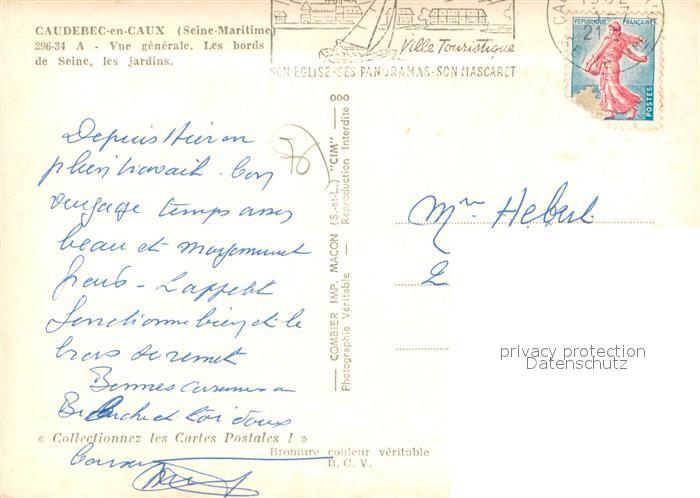 CAUDEBEC-en-CAUX (Seine-Maritime)
296-34 A - Vue générale. Les bords
de Seine, les jardins.
Ville Touristique
SON EGLISE-SES PANORAMAS-SON MASCARET
1962
21
REPUBLIQUE FRANÇAISE
POSTES
76
Depuis Hier en
plein travail. Bon
voyage temps assez
beau et moyennement
frais - L'appétit
fonctionne bien et le
bras se remet
Bonnes
et toi doux
« Collectionnez les Cartes Postales ! »
COMBIER IMP. MACON (S.-et-L.) "CIM"
Photographie Véritable - Reproduction Interdite
Bromure couleur véritable
B.C.V.
Mme Hebert
privacy protection
Datenschutz